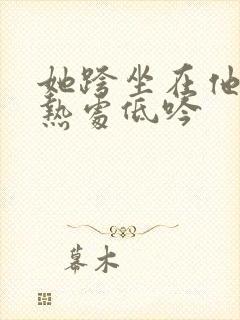 她跨坐在他
热处低吟
幕木